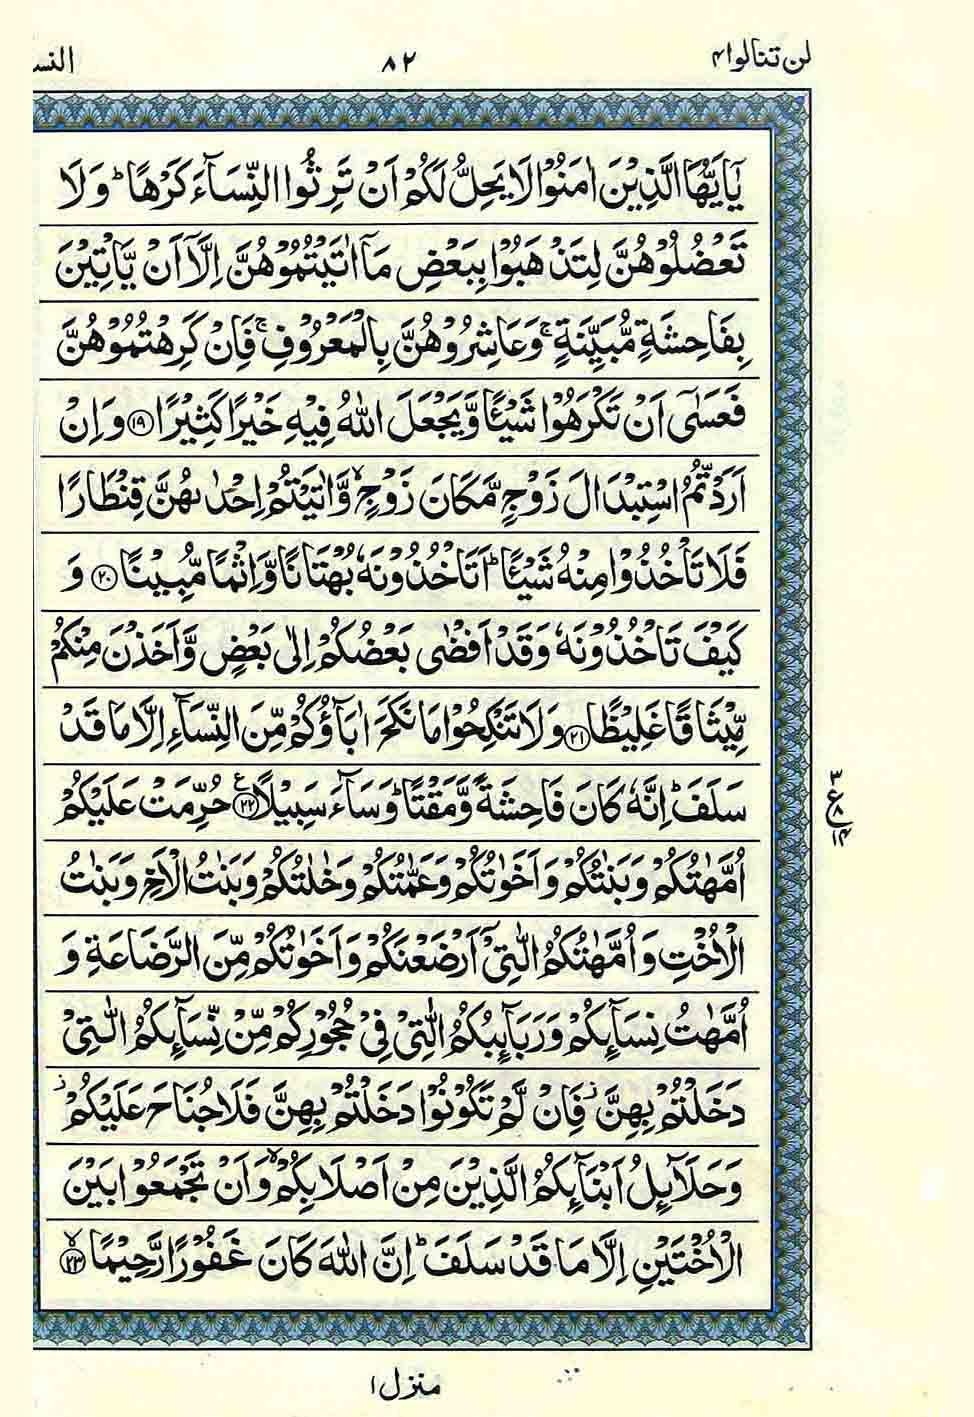 لن تنالوا ۴ ۸۲ النس
يٰۤاَيُّهَا الَّذِيْنَ اٰمَنُوْا لَا يَحِلُّ لَكُمْ اَنْ تَرِثُوا النِّسَآءَ كَرْهًا ؕ وَ لَا
تَعْضُلُوْهُنَّ لِتَذْهَبُوْا بِبَعْضِ مَاۤ اٰتَيْتُمُوْهُنَّ اِلَّاۤ اَنْ يَّاْتِيْنَ
بِفَاحِشَةٍ مُّبَيِّنَةٍ ۚ وَ عَاشِرُوْهُنَّ بِالْمَعْرُوْفِ ۚ فَاِنْ كَرِهْتُمُوْهُنَّ
فَعَسٰۤى اَنْ تَكْرَهُوْا شَيْـًٔا وَّ يَجْعَلَ اللّٰهُ فِيْهِ خَيْرًا كَثِيْرًا ۱۹ وَ اِنْ
اَرَدْتُّمُ اسْتِبْدَالَ زَوْجٍ مَّكَانَ زَوْجٍ ۙ وَّ اٰتَيْتُمْ اِحْدٰىهُنَّ قِنْطَارًا
فَلَا تَاْخُذُوْا مِنْهُ شَيْـًٔا ؕ اَتَاْخُذُوْنَهٗ بُهْتَانًا وَّ اِثْمًا مُّبِيْنًا ۲۰ وَ
كَيْفَ تَاْخُذُوْنَهٗ وَ قَدْ اَفْضٰى بَعْضُكُمْ اِلٰى بَعْضٍ وَّ اَخَذْنَ مِنْكُمْ
مِّيْثَاقًا غَلِيْظًا ۲۱ وَ لَا تَنْكِحُوْا مَا نَكَحَ اٰبَآؤُكُمْ مِّنَ النِّسَآءِ اِلَّا مَا قَدْ
سَلَفَ ؕ اِنَّهٗ كَانَ فَاحِشَةً وَّ مَقْتًا ؕ وَ سَآءَ سَبِيْلًا ۲۲ ع حُرِّمَتْ عَلَيْكُمْ
اُمَّهٰتُكُمْ وَ بَنٰتُكُمْ وَ اَخَوٰتُكُمْ وَ عَمّٰتُكُمْ وَ خٰلٰتُكُمْ وَ بَنٰتُ الْاَخِ وَ بَنٰتُ
الْاُخْتِ وَ اُمَّهٰتُكُمُ الّٰتِيْۤ اَرْضَعْنَكُمْ وَ اَخَوٰتُكُمْ مِّنَ الرَّضَاعَةِ وَ
اُمَّهٰتُ نِسَآىِٕكُمْ وَ رَبَآىِٕبُكُمُ الّٰتِيْ فِيْ حُجُوْرِكُمْ مِّنْ نِّسَآىِٕكُمُ الّٰتِيْ
دَخَلْتُمْ بِهِنَّ ؗ فَاِنْ لَّمْ تَكُوْنُوْا دَخَلْتُمْ بِهِنَّ فَلَا جُنَاحَ عَلَيْكُمْ ؗ
وَ حَلَآىِٕلُ اَبْنَآىِٕكُمُ الَّذِيْنَ مِنْ اَصْلَابِكُمْ ۙ وَ اَنْ تَجْمَعُوْا بَيْنَ
الْاُخْتَيْنِ اِلَّا مَا قَدْ سَلَفَ ؕ اِنَّ اللّٰهَ كَانَ غَفُوْرًا رَّحِيْمًا ۲۳ ۙ
۳ ع ۸ ۱۴
منزل ۱